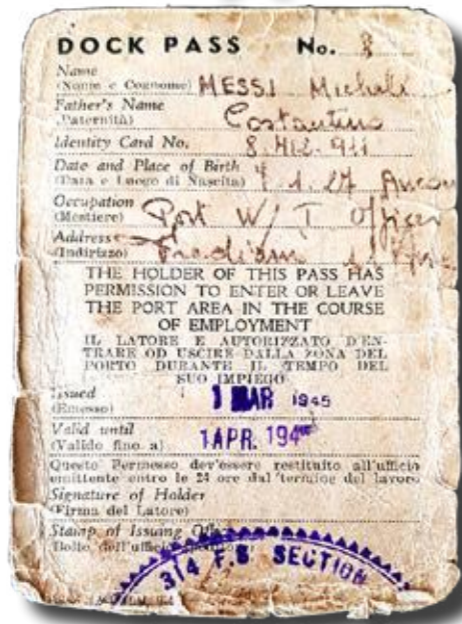 DOCK PASS No. 8
Name
(Nome e Cognome) MESSI Michele
Father's Name
(Paternità) Costantino
Identity Card No.
Date and Place of Birth
(Data e Luogo di Nascita)
Occupation
(Mestiere) Port W/T Officer
Address
(Indirizzo)
THE HOLDER OF THIS PASS HAS
PERMISSION TO ENTER OR LEAVE
THE PORT AREA IN THE COURSE
OF EMPLOYMENT
IL LATORE E AUTORIZZATO D'EN-
TRARE OD USCIRE DALLA ZONA DEL
PORTO DURANTE IL TEMPO DEL
SUO IMPIEGO
Issued
(Emesso) 1 MAR 1945
Valid until
(Valido fino a) 1 APR. 194
Questo Permesso dev'essere restituito all'ufficio
emittente entro le 24 ore dal termine del lavoro
Signature of Holder
(Firma del Latore)
Stamp of Issuing
Bollo dell'ufficio
314 F.S. SECTION